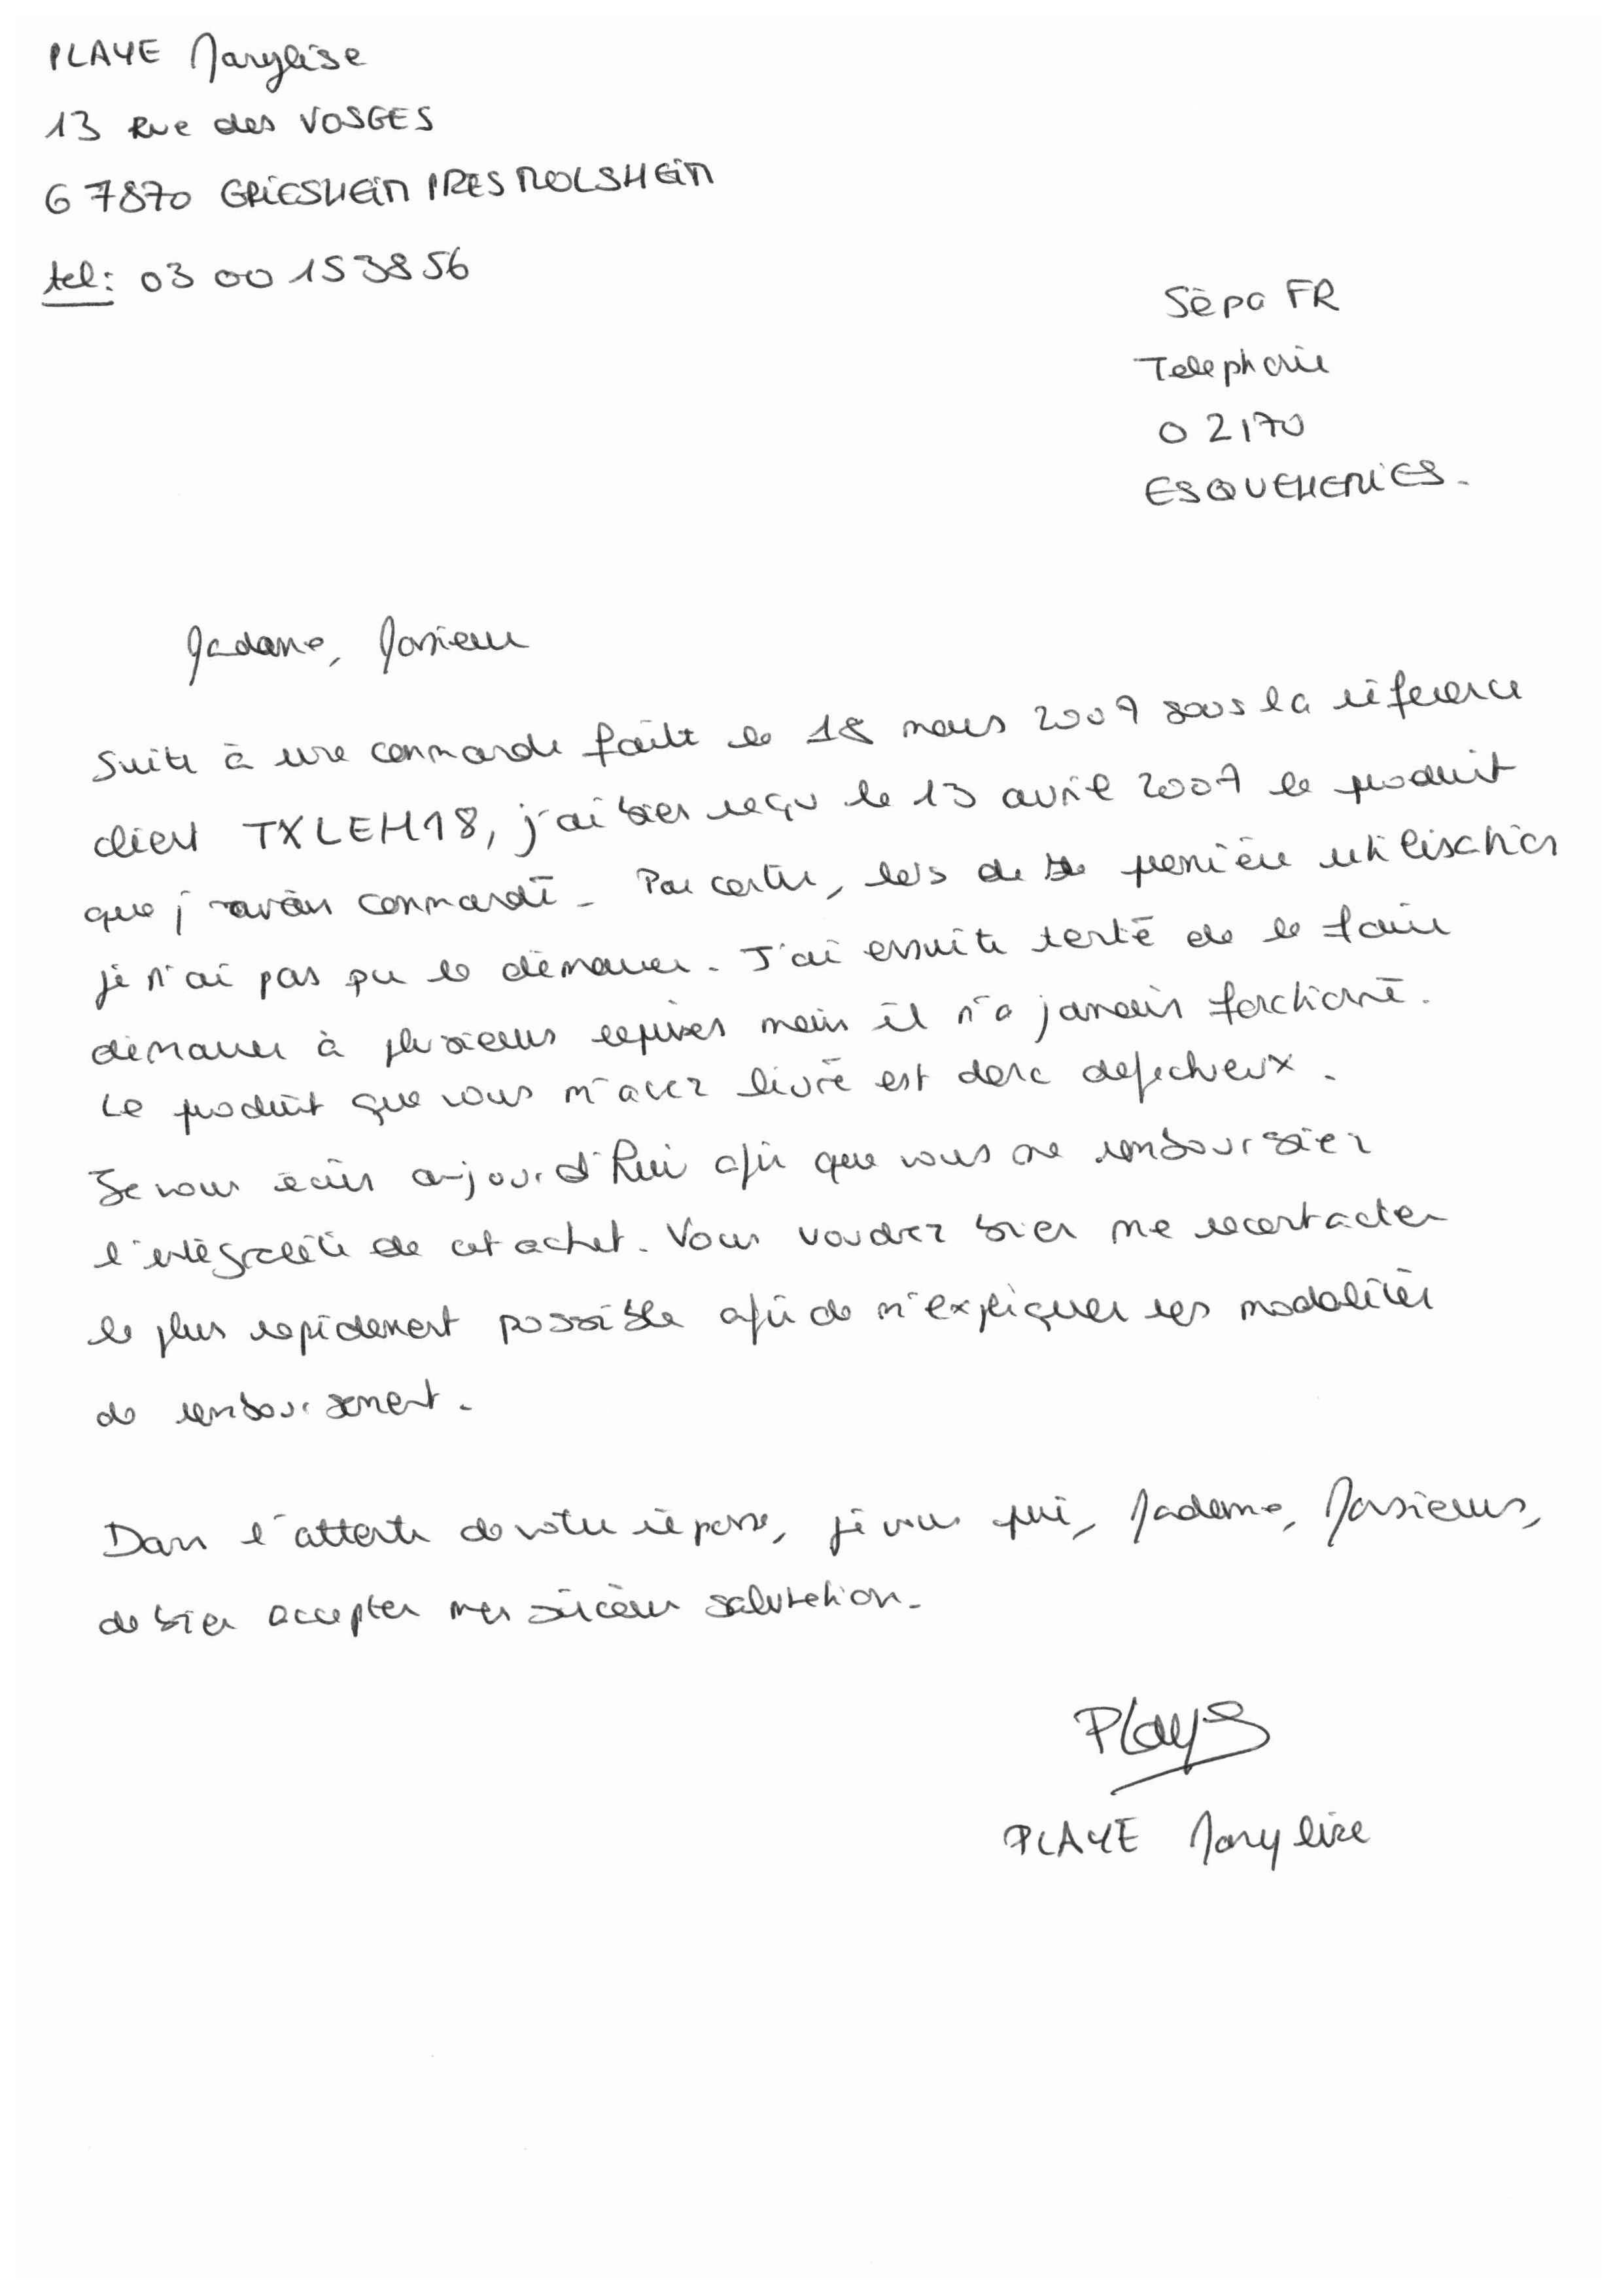 PLAYE Marylise
13 Rue des VOSGES
67870 GRIESHEIM PRES MOLSHEIM
tel: 03 00 15 38 56
Sépa FR
Telephonie
02170
ESQUEHERIES.
Madame, Monsieur
Suite à une commande faite le 18 mars 2007 sous la référence
client TXLEH18, j'ai bien reçu le 13 avril 2007 le produit
que j'avais commandé. Par contre, lors de la première utilisation
je n'ai pas pu le démarrer. J'ai ensuite tenté de le faire
démarrer à plusieurs reprises mais il n'a jamais fonctionné.
Le produit que vous m'avez livré est donc defectueux.
Je vous écris aujourd'hui afin que vous me remboursiez
l'intégralité de cet achat. Vous voudrez bien me recontacter
le plus rapidement possible afin de m'expliquer les modalités
de remboursement.
Dans l'attente de votre réponse, je vous prie, Madame, Monsieurs,
de bien accepter mes sincères salutation.
Playe
PLAYE Marylise